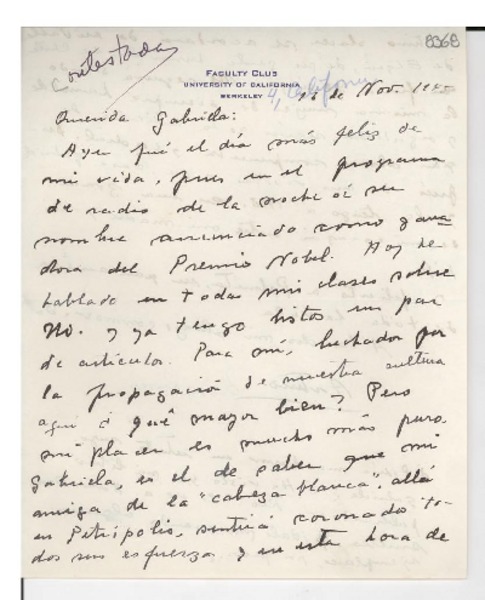 8368
Contestada
FACULTY CLUB
UNIVERSITY OF CALIFORNIA
BERKELEY 4, California
16 de Nov. 1945
Querida Gabriela:
Ayer fué el día más feliz de
mi vida, pues en el programa
de radio de la noche oí su
nombre anunciado como gana-
dora del Premio Nobel. Hoy he
hablado en todas mis clases sobre
Ud. y ya tengo listos un par
de artículos. Para mí, luchador por
la propagación de nuestra cultura
aquí ¿qué mayor bien? Pero
mi placer es mucho más puro.
Gabriela, es el de saber que mi
amiga de la "cabeza blanca", allá
en Petrópolis, sentirá coronado to-
dos sus esfuerzos y en esta hora de